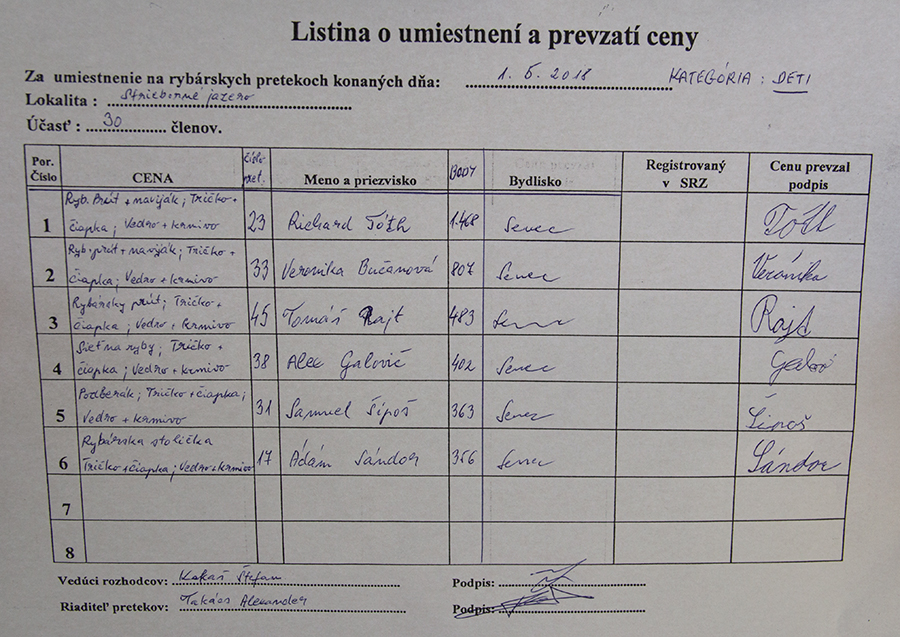 Listina o umiestnení a prevzatí ceny
Za umiestnenie na rybárskych pretekoch konaných dňa: 1. 5. 2018 KATEGÓRIA : DETI
Lokalita : Strieborné jazero
Účasť : 30 členov.
Por. Číslo CENA číslo pret. Meno a priezvisko BODY Bydlisko Registrovaný v SRZ Cenu prevzal podpis
1 Ryb. Prút + naviják ; Tričko + čiapka ; Vedro + krmivo 23 Richard Tóth 1.468 Senec Tóth
2 Ryb. prút + naviják ; Tričko + čiapka ; Vedro + krmivo 33 Veronika Bučanová 807 Senec Veronika
3 Rybársky prút ; Tričko + čiapka ; Vedro + krmivo 45 Tomáš Rajt 483 Senec Rajt
4 Sieť na ryby ; Tričko + čiapka ; Vedro + krmivo 38 Alec Galovič 402 Senec
5 Podberák ; Tričko + čiapka ; Vedro + krmivo 31 Samuel Šipoš 363 Senec Šipoš
6 Rybárska stolička Tričko + čiapka ; Vedro + krmivo 17 Ádám Sándor 356 Senec Sándor
7
8
Vedúci rozhodcov: Kakaš Štefan Podpis:
Riaditeľ pretekov: Takács Alexander Podpis: